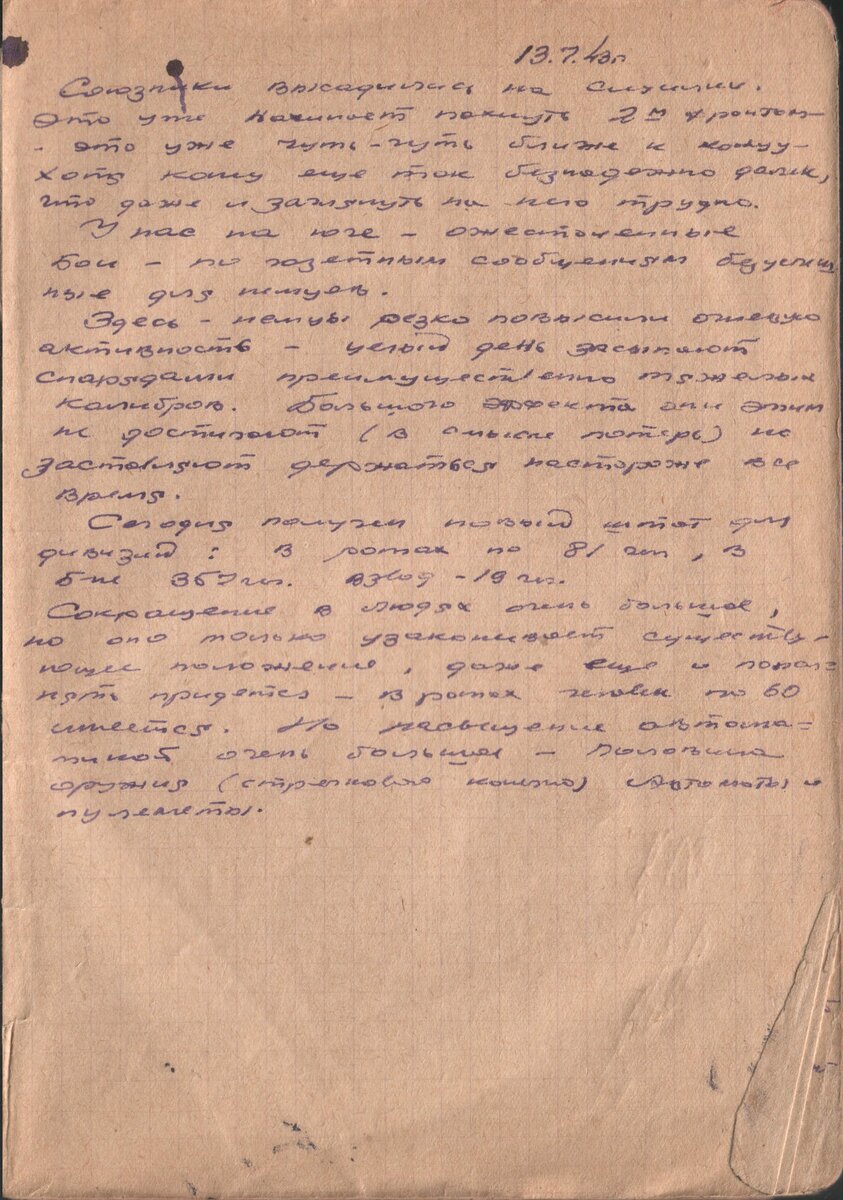 13.7.43г.
Союзники высадились на Сицилии.
Это уже начинает пахнуть 2м фронтом-
- это уже чуть-чуть ближе к концу-
хотя концу еще так безнадежно далек,
что даже и заглянуть на него трудно.
У нас на юге - ожесточенные
бои - по газетным сообщениям безуспеш
ные для немцев.
Здесь - немцы резко повысили огневую
активность - целый день засыпают
снарядами преимущественно тяжелых
калибров. Большого эффекта они этим
не достигают (в смысле потерь) но
заставляют держаться настороже все
время.
Сегодня получен новый штат для
дивизий: в ротах по 81 чел, в
б-не 367 чел. взвод - 19 чел.
Сокращение в людях очень большое,
но оно только узаконивает существу-
ющее положение, даже еще и попол=
нять придется - в ротах человек по 60
имеется. Но насыщение автома=
тикой очень большое - половина
оружия (стрелкового конечно) автоматы и
пулеметы.